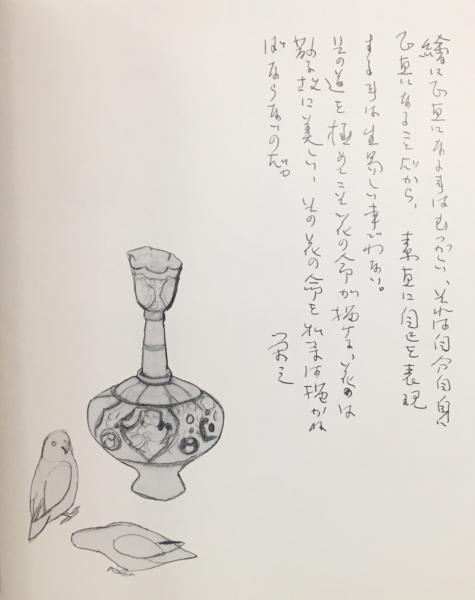 繪に正直になる事はむつかしい、それは自分自身に
正直になることだから、素直に自己を表現
する事は生易しい事でわない。
其の道を極めてこそ花の命が描ける、花の
散る故に美しい、その花の命を私は描かね
ばならないのだ。